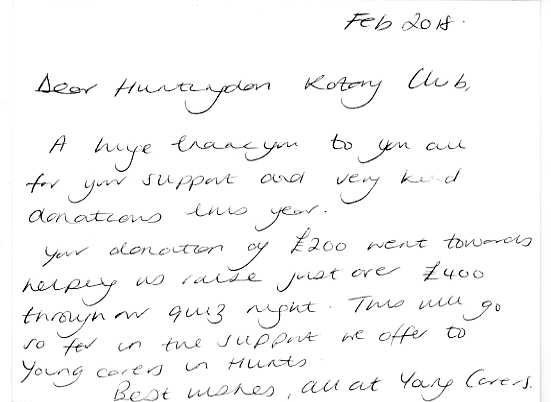 Feb 2018.
Dear Huntingdon Rotary Club,
A huge thankyou to you all
for your support and very kind
donations this year.
Your donation of £200 went towards
helping us raise just over £400
through our quiz night. This will go
so far in the support we offer to
Young carers in Hunts.
Best wishes, all at Young Carers.